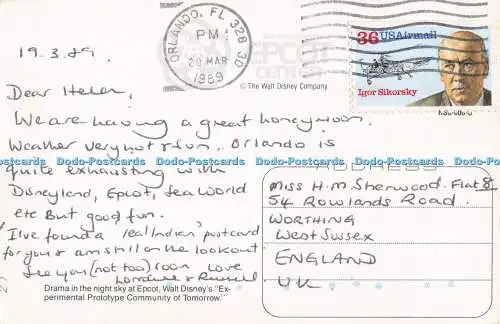 19.3.89.
ORLANDO, FL 328 30
PM
20 MAR
1989
EPCOT
CENTER
© The Walt Disney Company
36 USAirmail
Igor Sikorsky
Dear Helen,
We are having a great honeymoon.
Weather very hot & fun. Orlando is
quite exhausting with
Disneyland, Epcot, Sea World
etc But good fun.
I've found a 'real Indian' postcard
for you & am still on the lookout
See you (not too) soon Love
Lorraine & Russell
Drama in the night sky at Epcot, Walt Disney's "Ex-
perimental Prototype Community of Tomorrow."
ADDRESS
Miss H.M. Sherwood. Flat 8,
54 Rowlands Road.
WORTHING
West Sussex
ENGLAND
U.K.
Dodo-Postcards Dodo-Postcards Dodo-Postcards Dodo-Postcards